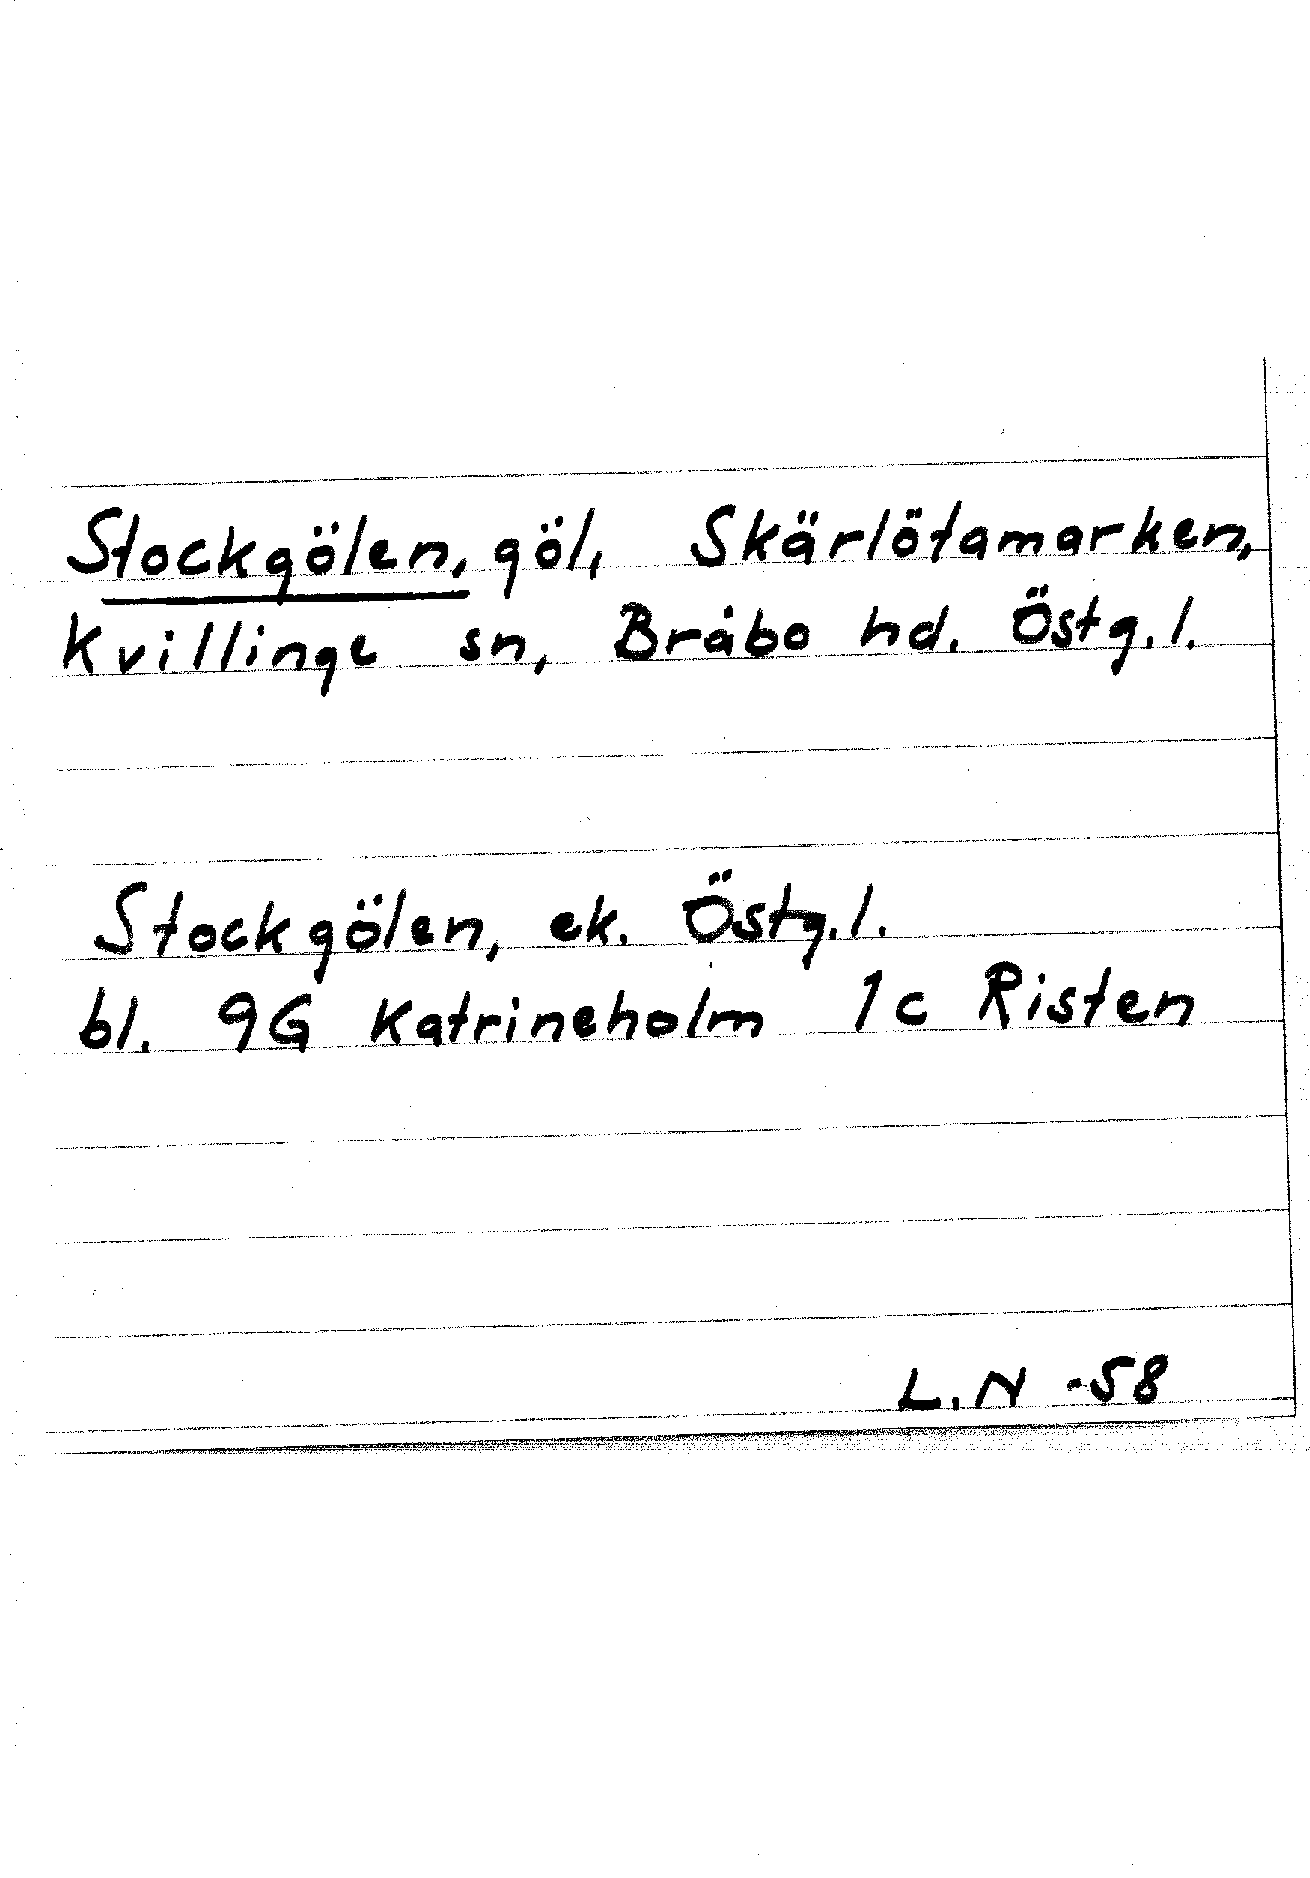 Stockgölen, göl, Skärlötamarken,
Kvillinge sn, Bråbo hd. Östg.l.
Stockgölen, ek. Östg.l.
bl. 9G Katrineholm 1c Risten
L.N -58